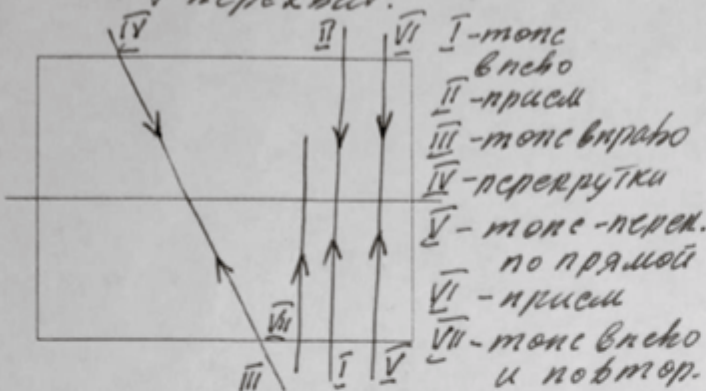 IV
II
VI
I - топс
влево
II - приём
III - топс вправо
IV - перекрутки
V - топс - перек.
по прямой
VI - приём
VII - топс влево
и повтор.
VII
III
I
V